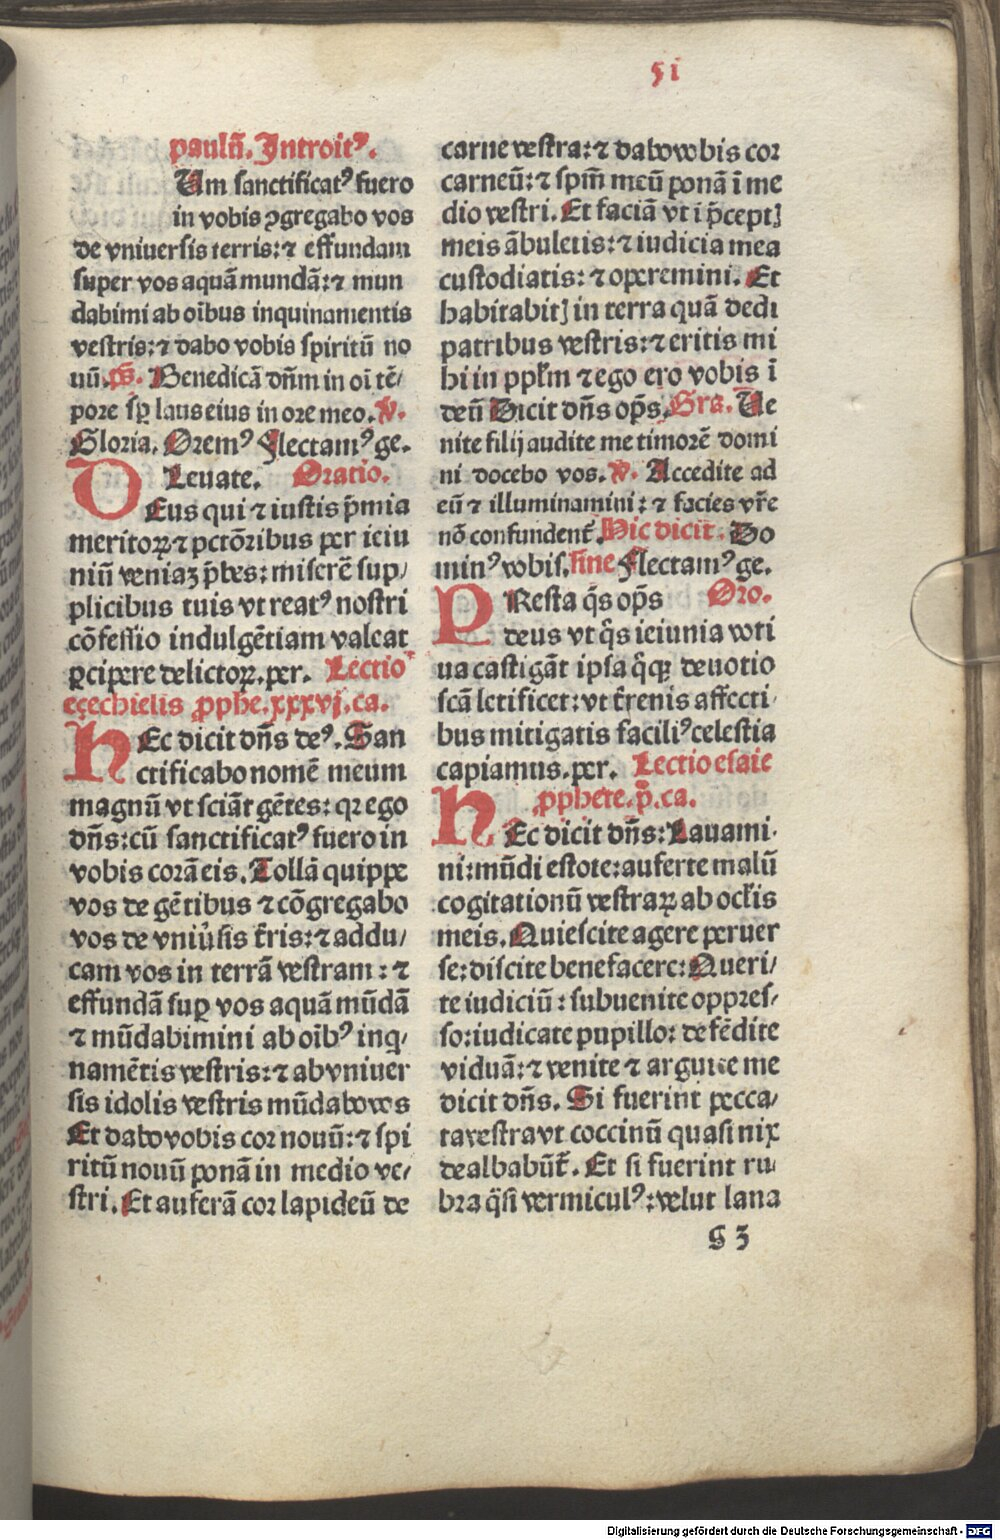 51
paulū. Introitꝰ.
Um sanctificatꝰ fuero
in vobis ꝯgregabo vos
de vniuersis terris: ⁊ effundam
super vos aquā mundā: ⁊ mun
dabimi ab oībus inquinamentis
vestris: ⁊ dabo vobis spiritū no
uū. p̄s. Benedicā dn̄m in oī tē/
pore sꝑ laus eius in ore meo. V.
Gloria. Oremꝰ Flectamꝰ ge.
Leuate. Oratio.
DEus qui ⁊ iustis p̄mia
meritoꝝ ⁊ pctōribus per ieiu
niū veniaꝫ p̄bes: miserē sup/
plicibus tuis vt reatꝰ nostri
cōfessio indulgētiam valeat
ꝑcipere delictoꝝ. per. Lectio
eçechielis ꝓphe. xxxvj. ca.
HEc dicit dn̄s deꝰ. San
ctificabo nomē meum
magnū vt sciāt gētes: qꝛ ego
dn̄s: cū sanctificatꝰ fuero in
vobis corā eis. Tollā quippe
vos de gētibus ⁊ cōgregabo
vos de vniu̓sis t̄ris: ⁊ addu/
cam vos in terrā vestram: ⁊
effundā suꝑ vos aquā mūdā
⁊ mūdabimini ab oībꝰ inq̇/
namētis vestris: ⁊ ab vniuer
sis idolis vestris mūdabo vos
Et dabo vobis cor nouū: ⁊ spi
ritū nouū ponā in medio ve/
stri. Et auferā cor lapideū de
carne vestra: ⁊ dabo vobis cor
carneū: ⁊ spm̄ meū ponā ī me
dio vestri. Et faciā vt ī p̄ceptꝭ
meis ābuletis: ⁊ iudicia mea
custodiatis: ⁊ operemini. Et
habitabitꝭ in terra quā dedi
patribus vestris: ⁊ eritis mi
hi in pplm̄ ⁊ ego ero vobis ī
deū Dicit dn̄s op̄s. Gra. Ue
nite filij audite me timorē domi
ni docebo vos. V. Accedite ad
eū ⁊ illuminamini: ⁊ facies vr̄e
nō confundent̄. Hic dicit. Do
minꝰ vobis. sine Flectamꝰ ge.
PResta q̄s op̄s Oro.
deus vt q̄s ieiunia voti
ua castigāt ipsa q̄qꝫ deuotio
scā letificet: vt t̄renis affecti
bus mitigatis faciliꝰ celestia
capiamus. per. Lectio esaie
ꝓphete. p̄. ca.
HEc dicit dn̄s: Lauami
ni: mūdi estote: auferte malū
cogitationū vestraꝝ ab ocl̄is
meis. Quiescite agere peruer
se: discite benefacere: Queri/
te iudiciū: subuenite oppres/
so: iudicate pupillo: defēdite
viduā: ⁊ venite ⁊ arguite me
dicit dn̄s. Si fuerint pecca/
ta vestra vt coccinū quasi nix
dealbabūt̄. Et si fuerint ru/
bra q̄si vermiculꝰ: velut lana
g 3
Digitalisierung gefördert durch die Deutsche Forschungsgemeinschaft - DFG